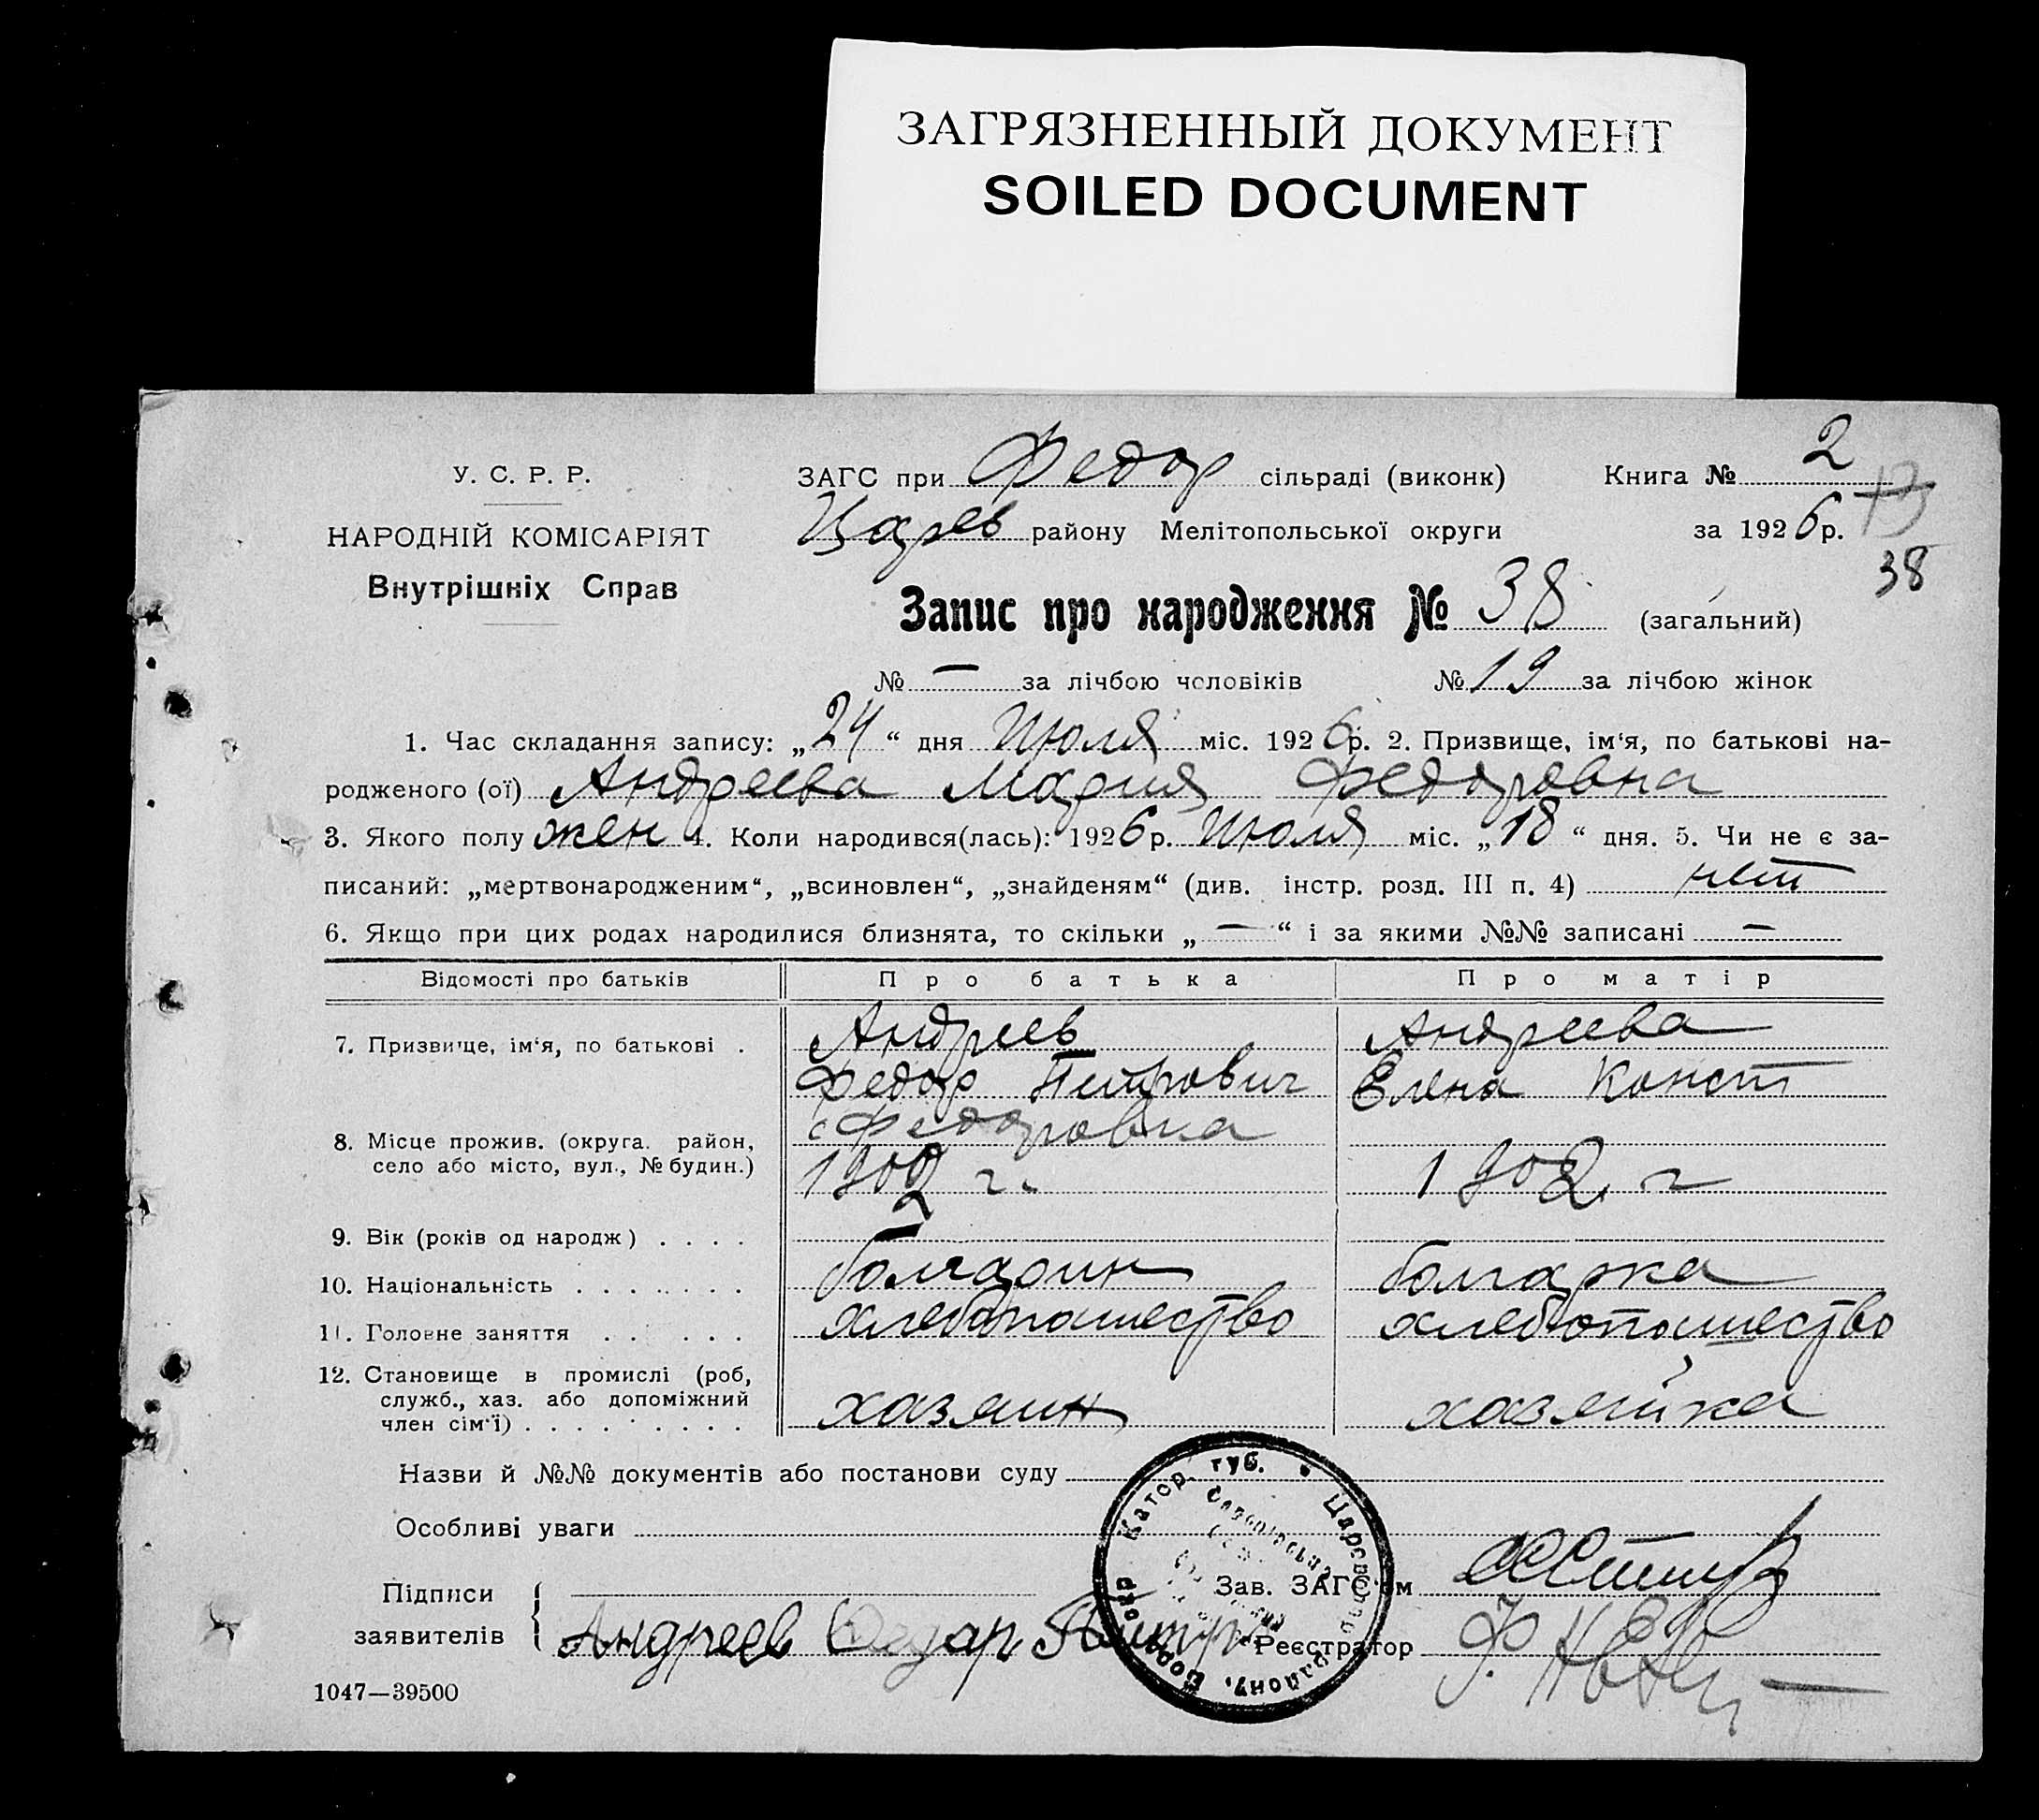 ЗАГРЯЗНЕННЫЙ ДОКУМЕНТ
SOILED DOCUMENT
У. С. Р. Р.
НАРОДНІЙ КОМІСАРІЯТ
Внутрішніх Справ
ЗАГС при Федор сільраді (виконк) Книга № 2
Царев району Мелітопольської округи за 1926р.
38
Запис про народження № 38 (загальний)
№ — за лічбою чоловіків № 19 за лічбою жінок
1. Час складання запису: „24“ дня Июля міс. 1926р. 2. Призвище, ім‘я, по батькові на-
родженого (ої) Андреева Мария Федоровна
3. Якого полу жен 4. Коли народився(лась): 1926р. Июля міс. „18“ дня. 5. Чи не є за-
писаний: „мертвонародженим“, „всиновлен“, „знайденям“ (див. інстр. розд. III п. 4) нет
6. Якщо при цих родах народилися близнята, то скільки „—“ і за якими №№ записані —
Відомості про батьків Про батька Про матір
7. Призвище, ім‘я, по батькові . Андреев Андреева
Федор Петрович Елена Конст
8. Місце прожив. (округа. район, с Федоровка
село або місто, вул., № будин.) 1902 г. 1902 г
9. Вік (років од народж) . . . .
10. Національність . . . . . . . болгарин болгарка
11. Головне заняття . . . . . . хлебопашество хлебопашество
12. Становище в промислі (роб,
служб., хаз. або допоміжний хазяин хазяйка
член сім‘ї) . . . . . . . .
Назви й №№ документів або постанови суду
Особливі уваги
Підписи Зав. ЗАГС‘ом
заявителів Андреев Реєстратор
1047—39500